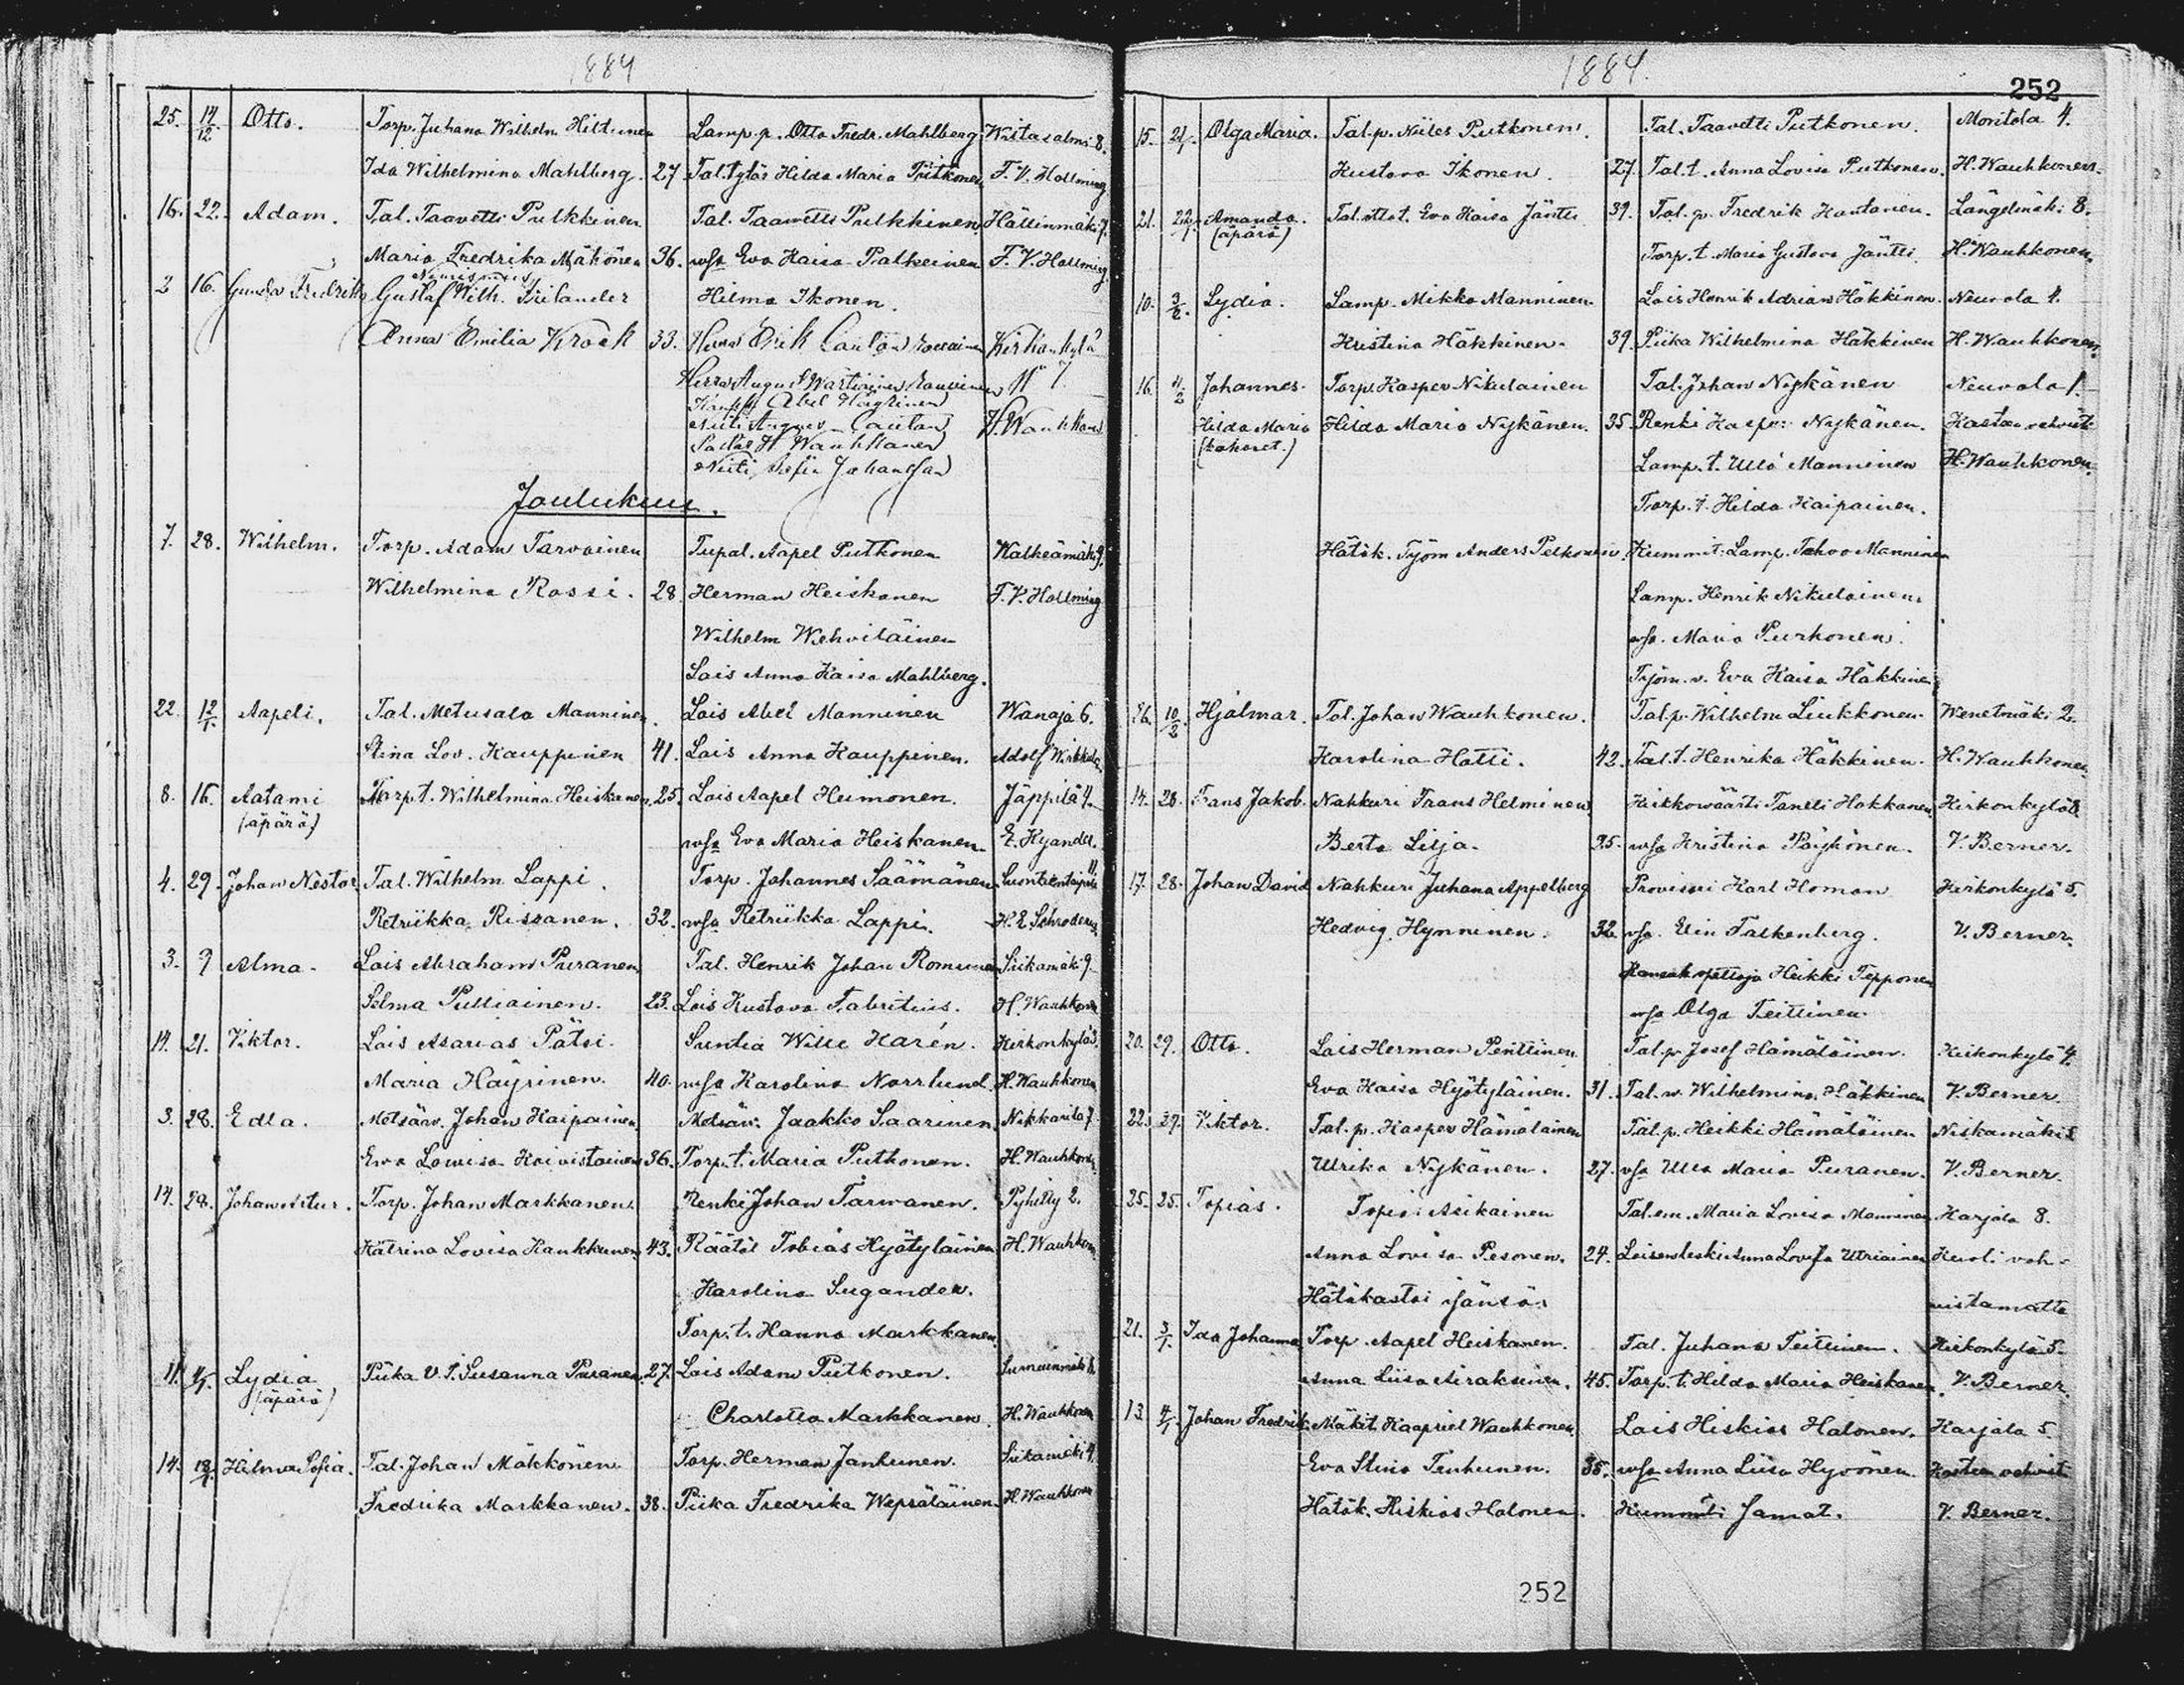 1884
25. 14/12 Otto. Torp. Juhana Wilhelm Hiltunen Lamp. p. Otto Fredr. Mahlberg Wiitasalmi 8.
Ida Wilhelmina Mahlberg. 27 Tal. tytär Hilda Maria Pitkonen F. V. Hallming
16. 22. Adam. Tal. Taavetti Pulkkinen Tal. Taawetti Pulkkinen Hällinmäki 7.
Maria Fredrika Mähönen 36. wsa Eva Kaisa Palkeinen F. V. Hallming
2 16. Gunda Fredrika Gustaf Wilh. Hilma Ikonen.
Anna Emilia Krook 33. Herra Erik Kirkonkylä
Herra August No 7
Abel
Neiti H. Wauhkonen
H. Wauhkonen
Neiti Sofia Johansson
Joulukuu.
7. 28. Wilhelm. Torp. Adam Tarvainen Tupal. Aapel Putkonen Walkeamäki 9.
Wilhelmina Rossi. 28. Herman Heiskanen F. V. Hallming
Wilhelm Wehviläinen
Lois Anna Kaisa Mahlberg.
22. 12/1. Aapeli. Tal. Metusala Manninen. Lois Abel Manninen Wanaja 6.
Stina Lov. Kauppinen 41. Lois Anna Kauppinen. Adolf
8. 16. Aatami Torp. t. Wilhelmina Heiskanen 25. Lois Aapel Heimonen. Jäppilä 4.
(äpärä) wsa Eva Maria Heiskanen. E. Kyander.
4. 29. Johan Nestor Tal. Wilhelm Lappi. Torp. Johannes Säämänen
Retriikka Rissanen. 32. wsa Retriikka Lappi. H. E. Schroderus
3. 9 Alma. Lois Abraham Puranen Tal. Henrik Johan Romunen Siikamäki 9.
Selma Pulliainen. 23. Lois Kustava Fabritius. H. Wauhkonen
14. 21. Viktor. Lois Asarias Pätsi. Suntia Wille Harén. Kirkonkylä 3.
Maria Häyrinen. 40. wsa Karolina Norrlund. H. Wauhkonen
3. 28. Edla. Metsänv. Johan Kaipainen Metsänv. Jaakko Saarinen. Nikkarila 7
Eva Lowisa Koivistoinen 36. Torp. t. Maria Putkonen. H. Wauhkonen
14. 28. Johan Torp. Johan Markkanen. Renki Johan Tarwanen. Pyhitty 2.
Katrina Lovisa Kaukkunen 43. Räätäl Tobias Hyötyläinen H. Wauhkonen
Karolina Sugander.
Torp. t. Hanna Markkanen.
11. 4/1. Lydia Piika V. T. Susanna Puranen. 27. Lois Adam Putkonen.
(äpärä) Charlotta Markkanen. H. Wauhkonen
14. 18/1. Hilma Sofia. Tal. Johan Mökkönen. Torp. Herman Jantunen. Siikamäki 4.
Fredrika Markkanen. 38. Piika Fredrika Wepsäläinen. H. Wauhkonen
1884.
252
15. 21/1. Olga Maria. Tal. p. Niiles Putkonen. Tal. Taavetti Putkonen. Montola 4.
Kustava Ikonen. 27. Tal. t. Anna Lovisa Putkonen. H. Wauhkonen.
21. 22/1. Amanda. Tal. t. Eva Kaisa Jäntti 39. Tal. p. Fredrik Hautanen. Längelmäki 8.
(äpärä) Torp. t. Maria Gustava Jäntti. H. Wauhkonen.
10. 3/2. Lydia. Lamp. Mikko Manninen. Lois Henrik Adrian Häkkinen. Neuvola 1.
Kristina Häkkinen. 39. Piika Wilhelmina Häkkinen H. Wauhkonen.
16. 4/2 Johannes. Torp. Kasper Nikulainen Tal. Johan Nykänen Neuvola 1.
Hilda Maria Hilda Maria Nykänen. 35. Renki Kasper Nykänen. Kasteen vahvist
(kaksoset.) Lamp. t. Ulla Manninen H. Wauhkonen.
Torp. t. Hilda Kaipainen.
Hätäk. Työm Anders Pelkonen. Kummit: Lamp. Tahvo Manninen
Lamp. Henrik Nikulainen.
wsa. Maria Purhonen.
Työm. v. Eva Kaisa Häkkinen
26. 10/2 Hjalmar. Tal. Johan Wauhkonen. Tal. p. Wilhelm Liukkonen. Wenetmäki 2.
Karolina Hatti. 42. Tal. t. Henrika Häkkinen. H. Wauhkonen
14. 28. Frans Jakob. Nahkuri Frans Helminen. Taneli Hokkanen. Kirkonkylä
Berta Lilja. 35. wsa Kristina Pöyhönen. V. Berner.
17. 28. Johan David Nahkuri Juhana Appelberg Provisori Karl Homan Kirkonkylä 5.
Hedvig Hynninen. 32 wsa. Elin Falkenberg. V. Berner.
Kansak. opettaja Heikki Tepponen
wsa Olga Teittinen.
20. 29. Otto. Lois Herman Penttinen. Tal. p. Josef Hämäläinen. Kirkonkylä 4.
Eva Kaisa Hyötyläinen. 31. Tal. v. Wilhelmina Häkkinen V. Berner.
22. 29. Viktor. Tal. p. Kasper Hämäläinen Tal. p. Heikki Hämäläinen Niskamäki
Ulrika Nykänen. 27. wsa Ulla Maria Puranen. V. Berner.
25. 25. Topias. Topias Asikainen Tal. em. Maria Lovisa Manninen Karjala 8.
Anna Lovisa Pesonen. 24. Loisen leski Anna Lovisa Utriainen Kuoli vah-
Hätäkastoi vistamatta
21. 3/1. Ida Johanna Torp. Aapel Heiskanen. Tal. Juhana Teittinen. Kirkonkylä 5.
Anna Liisa Airaksinen. 45. Torp. t. Hilda Maria Heiskanen. V. Berner.
13. 4/1. Johan Fredrik. Mäkit. Kaapriel Wauhkonen. Lois Hiskias Halonen. Karjala 5.
Eva Stina Tenhunen. 35. wsa Anna Liisa Hyvönen. Kasteen vahvist
Hätäk. Hiskias Halonen. Kummit: Samat. V. Berner.
252